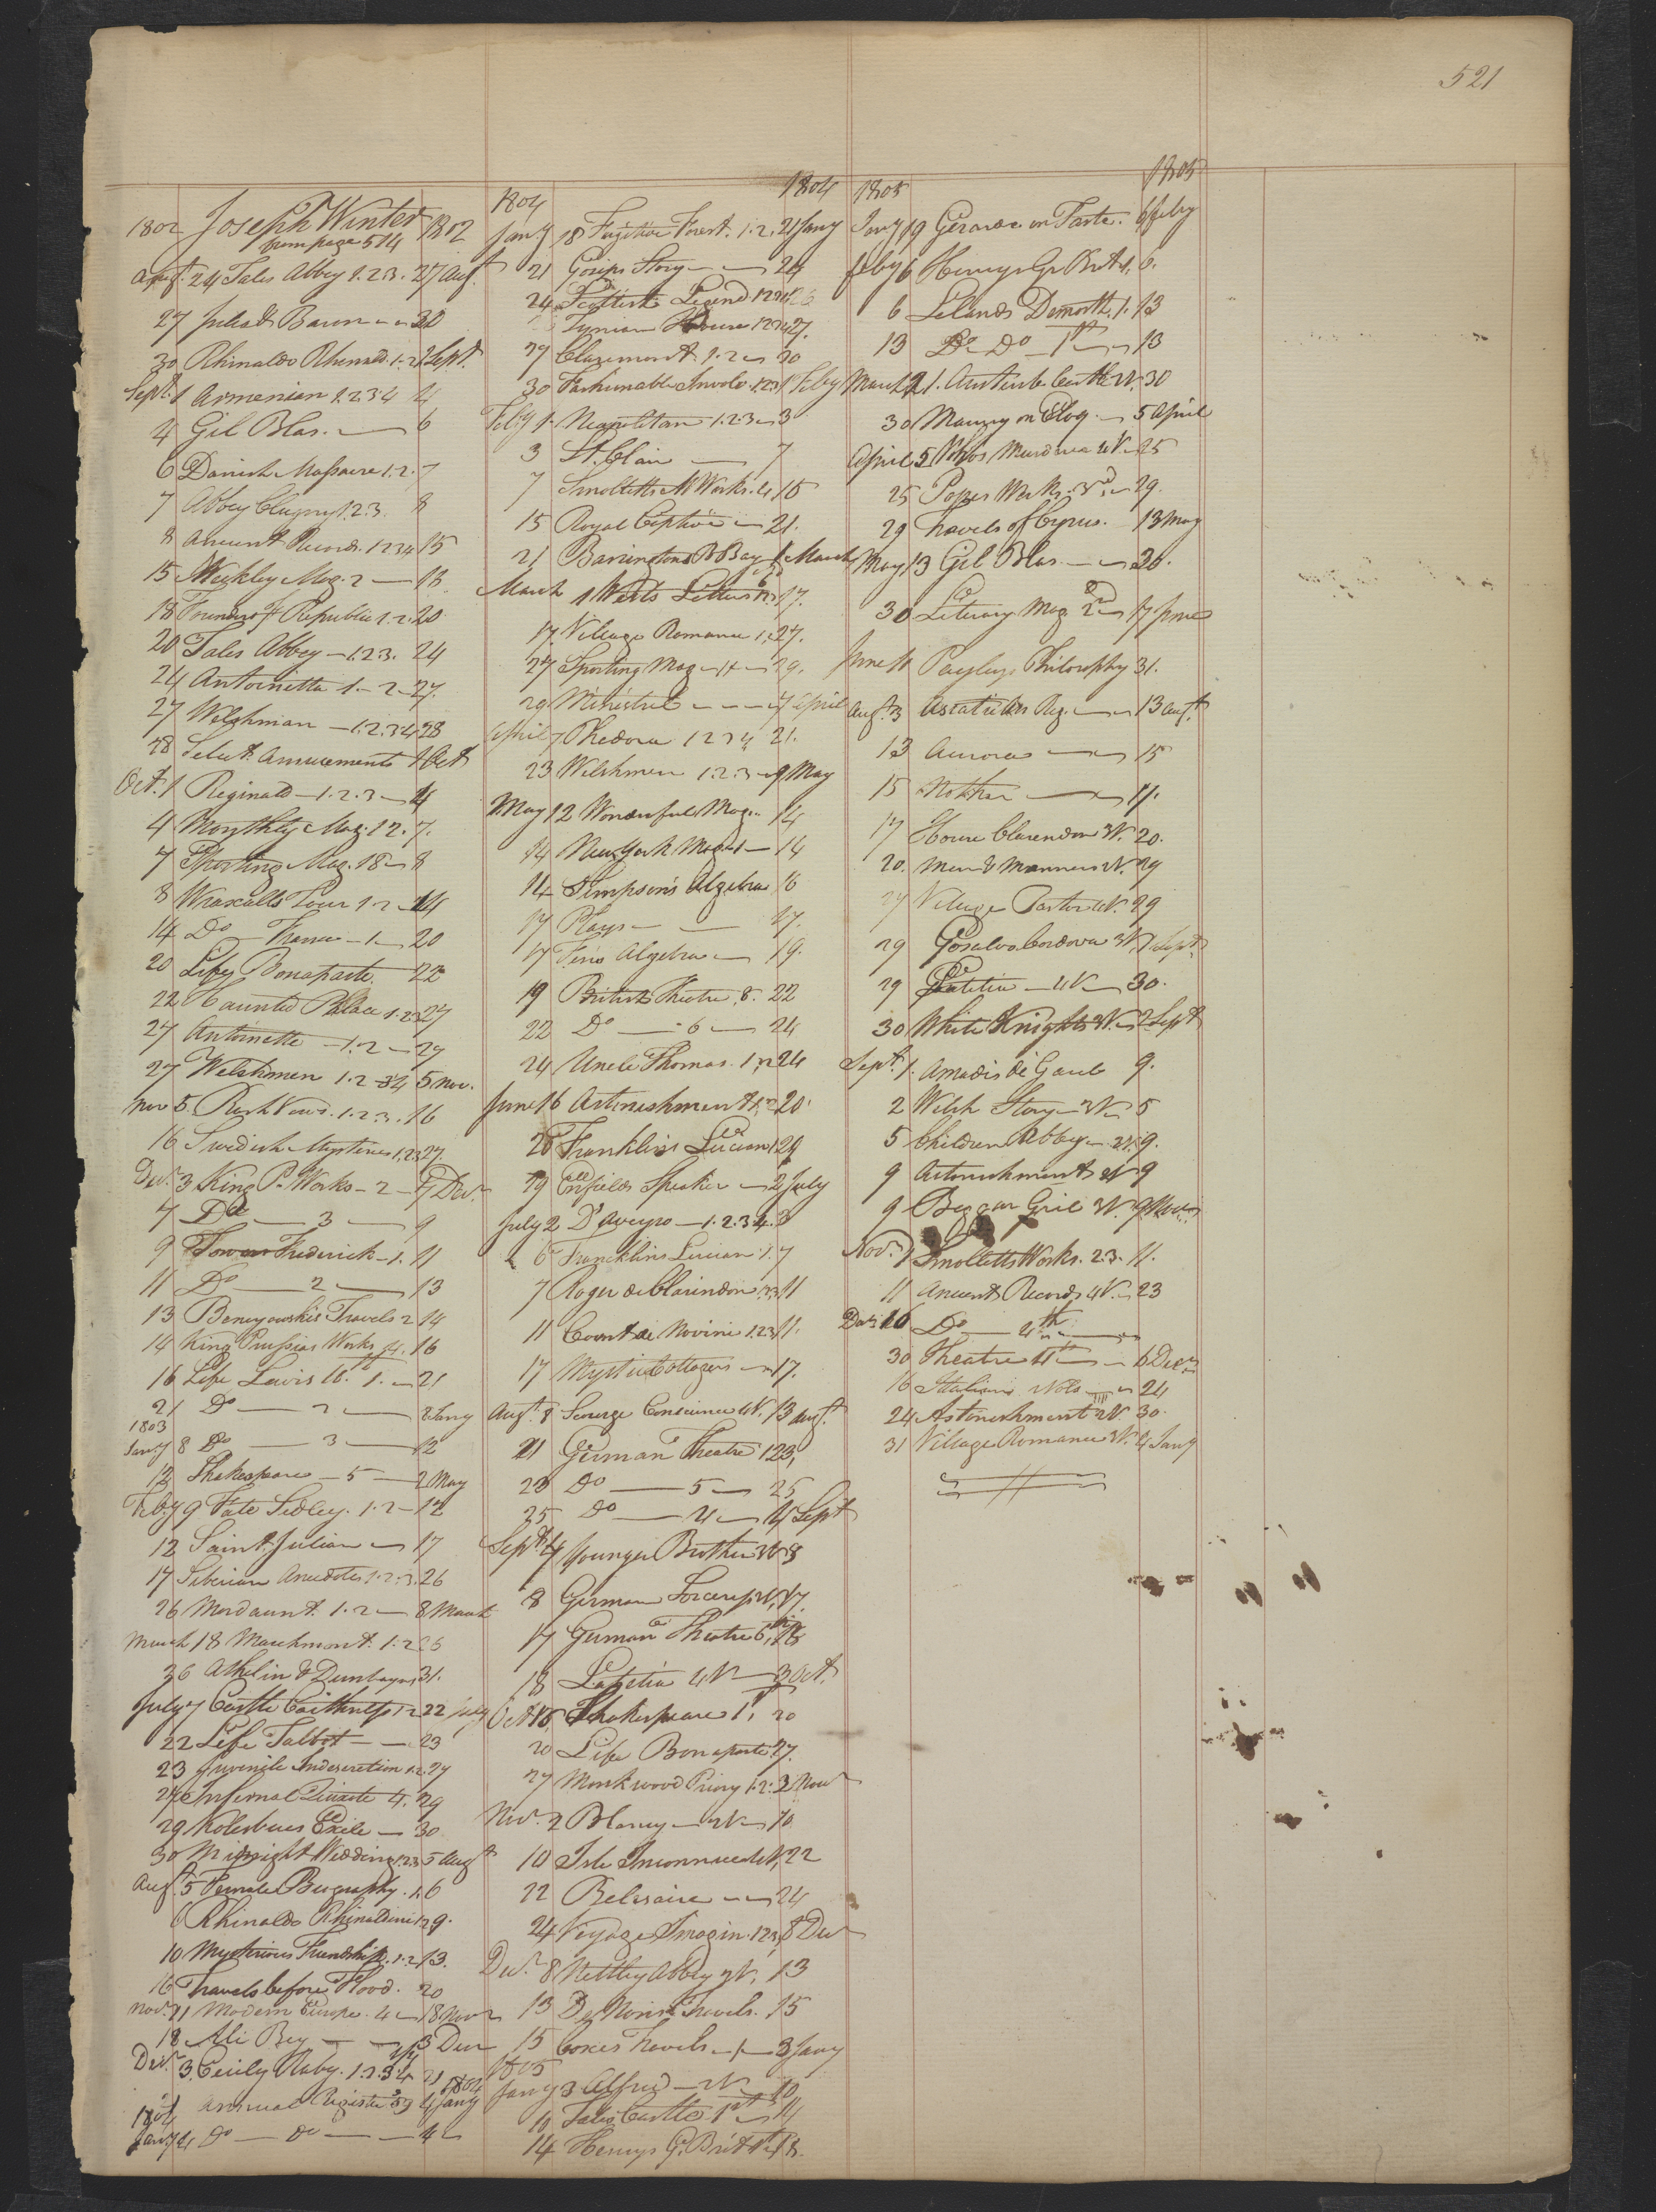 521
1802 Joseph Winter 1802
from page 514
Augt. 24 Tales Abbey 1.2.3. 27 Augt
27 Julia de Baron 30
30 Rhinaldo Rhinald. 1.2. 1 Sept.
Sept. 1 Armenian 1.2.3.4 4
4 Gil Blas. — 6
6 Danish Massacre 1.2. 7
7 Abbey Clugny 1.2.3. 8
8 Ancient Records. 1234 15
15 Weekley Mag. 2 — 18
18 Founders f Republic 1.2. 20
20 Tales Abbey — 1.2.3. 24
24 Antoinetta 1 — 2 — 27.
27 Welshman — 1.2.3.4 28
28 Select Amusements 1 Oct
Oct. 1 Reginald — 1.2.3 — 4
4 Monthly Mag. 12. 7.
7 Sporting Mag. 18 — 8
8 Wraxalls Tour 1.2 — 14
14 Do — France — 1 — 20
20 Life Bonaparte. 22
22 Haunted Palace 1.2.3 27
27 Antoinette — 1.2 — 27
27 Welshmen 1.2 — 34 5 Nov.
Nov 5. Rash Vows. 1.2.3. 16
16 Swedish Mysteries 1.2.3 27.
Decr. 3 King P. Works — 2 — 7 Decr.
7 Do — 3 — 9
9 Tower Frederick — 1. 11
11 Do — 2 — 13
13 Benyowskis Travels 2 14
14 King Prussias Works 4. 16
16 Life Lewis 16th 1. — 21
21 Do — 2 — 8 Jany
1803
Jany 8 Do — 3 — 12
12 Shakespeare — 5 — 2 May
Feby 9 Fate Sedley. 1.2 — 12
12 Saint Julian — 17
17 Siberian Anecdotes 1.2.3. 26
26 Mordaunt. 1.2 — 8 March
March 18 Marchmont. 1.2 26
26 Athelin & Dunbayne 31.
July 7 Castle Caithness 1.2 22 July
22 Life Talbot — — 23
23 Juvenile Indescretion 1.2. 27
27 Infernal Quixote 4. 29
29 Kotzebues Exile — 30
30 Midnight Wedding 1.2.3 5 Augt
Augt. 5 Female Biography. 1. 6
6 Rhinaldo Rhinaldini 1.2 9.
10 Mysterious Friendship. 1.2 13.
16 Travels before Flood. 20
Novr. 11 Modern Europe. 4 — 18 Novr
18 Ali Bey — — 3 Decr
Decr. 3. Cecily Raby. 1.2.3.4 21
Annual Register 89 4 Jany 1804
1804
Jany 4 Do — Do — — 4
1804 1804
Jany 18 Fugitive Forest. 1.2. 21 Jany
21 Gosips Story — — 24
24 Scottish Legend 1234 26
Tynian House 1234 27.
27 Claremont. 1.2 — 30
30 Fashionable Involv. 123 1 Feby
Feby 1. Neapolitan 1.2.3 — 3
3 St. Clair — 7
7 Smolletts M Works. 4 15
15 Royal Captives — 21.
21 Barringtons B Bay 1 March
March 1 Werts Letters 17.
17. Village Romance 1.2 27.
27 Sporting Mag — 4 — 29.
29 Minestrel — — — 7 April
April 7 Thedora 1 2 3 4 21.
23 Welshmen 1.2.3 — 9 May
May 12 Wonderful Mag. 14
14 New York Mag — 1 — 14
14 Simpson's Algebra 16
17 Plays — — 17.
17 Fens Algebra — 19.
19 British Theatre. 8. 22
22 Do — 6 — 24
24 Uncle Thomas. 1.2 24
June 16 Astonishment 1.2 20
26 Franklins Lucian 1 29
29 Enfields Speaker — 2 July
July 2 D'Aveyro — 1.2.3.4. 3
6 Francklins Lucian 1. 7
7 Roger de Clarindon 1.2.3 11
11 Count de Novini 1.2.3 11.
17 Mystic Cottagers — 17.
Augt. 8 Scourge Conscience 4V. 13 Augt.
21 German Theatre 1 23,
23 Do — 5 — 25
25 Do — 4 — 4 Sept
Sept. 4 Younger Brother 3V 8
8 German Sorceress V. 17.
17 German Theatre 6th 18
18 Latitia 4V — 3 Oct.
Oct 15 Shakespeare 1st 20
20 Life Bonaparte 27.
27 Monkwood Priory 1.2. 2 Novr
Nov. 2 Blarney — 2V — 10
10 Isle Inconnue 4V, 22
22 Belisaire — — 24
24 Voyage Imagin. 1.2.3, 8 Decr
Decr. 8 Nettley Abbey 2V. 13
13 De Nonis Travels. 15
15 Coxes Travels — 1 — 3 Jany
1805
Jany 3 Alfred — 2V — 10
10 Tales Castle 1st — 14
14 Henrys G. Brit 1st 18.
1805 1805
Jany 19 Gerarde on Taste. 6 Feby
Feby 6 Henrys Gr Brit 1. 6.
6 Lelands Demosth. 1. 13
13 Do — Do — 1st — 13
March 21. Austenb. Castle 2V. 30
30 Maury on Eloq. — 5 April
April 5 Vohos Mundrua 4V — 25
25 Popes Works. 3d. — 29.
29 Travels of Cyrus. — 13 May
May 13 Gil Blas. — — 20.
30 Literary Mag. 2d — 17 June
June 11 Payleys Philosophy 31.
Augt. 3 Asiatic An Reg. — — 13 Augt.
13 Auroras — — 15
15 Mother — — 17.
17 House Clarendon 3V. 20.
20. Men & Manners 4V. 29
27 Village Pastor 4V. 29
29 Gosalvo Cordova 3V, 1 Sept
29 Latitia — 4V — 30.
30 White Knights 3V. — 2 Sept
Sept. 1. Amadis de Gaul 9.
2 Welsh Story — 3V — 5
5 Children Abbey — 2V. 9.
9 Astonishment 2V 9
9 Beggar Girl 3V. 9 Novr.
Novr. 1 Smolletts Works. 2.3. 11.
11 Ancient Records 4V. — 23
Decr. 16 Do — 4th
30 Theatre 4th — — 6 Decr
16 Italian Vols — 24
24 Astonishment 2V. 30.
31 Village Romance 3V. 4 Jany